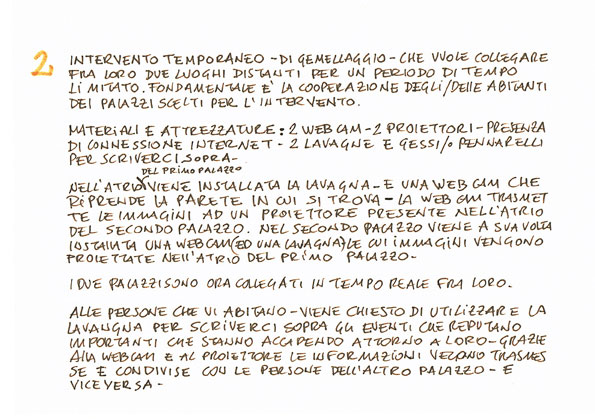 2 INTERVENTO TEMPORANEO - DI GEMELLAGGIO - CHE VUOLE COLLEGARE
FRA LORO DUE LUOGHI DISTANTI PER UN PERIODO DI TEMPO
LIMITATO. FONDAMENTALE È LA COOPERAZIONE DEGLI/DELLE ABITANTI
DEI PALAZZI SCELTI PER L'INTERVENTO.
MATERIALI E ATTREZZATURE: 2 WEBCAM - 2 PROIETTORI - PRESENZA
DI CONNESSIONE INTERNET - 2 LAVAGNE E GESSI/O PENNARELLI
PER SCRIVERCI SOPRA -
DEL PRIMO PALAZZO
NELL'ATRIO VIENE INSTALLATA LA LAVAGNA - E UNA WEBCAM CHE
RIPRENDE LA PARETE IN CUI SI TROVA - LA WEBCAM TRASMET
TE LE IMMAGINI AD UN PROIETTORE PRESENTE NELL'ATRIO
DEL SECONDO PALAZZO. NEL SECONDO PALAZZO VIENE A SUA VOLTA
INSTALLATA UNA WEBCAM (ED UNA LAVAGNA) LE CUI IMMAGINI VENGONO
PROIETTATE NELL'ATRIO DEL PRIMO PALAZZO -
I DUE PALAZZI SONO ORA COLLEGATI IN TEMPO REALE FRA LORO.
ALLE PERSONE CHE VI ABITANO - VIENE CHIESTO DI UTILIZZARE LA
LAVANGNA PER SCRIVERCI SOPRA GLI EVENTI CHE REPUTANO
IMPORTANTI CHE STANNO ACCADENDO ATTORNO A LORO - GRAZIE
ALLA WEBCAM E AL PROIETTORE LE INFORMAZIONI VENGONO TRASMES
SE E CONDIVISE CON LE PERSONE DELL'ALTRO PALAZZO - E
VICEVERSA -